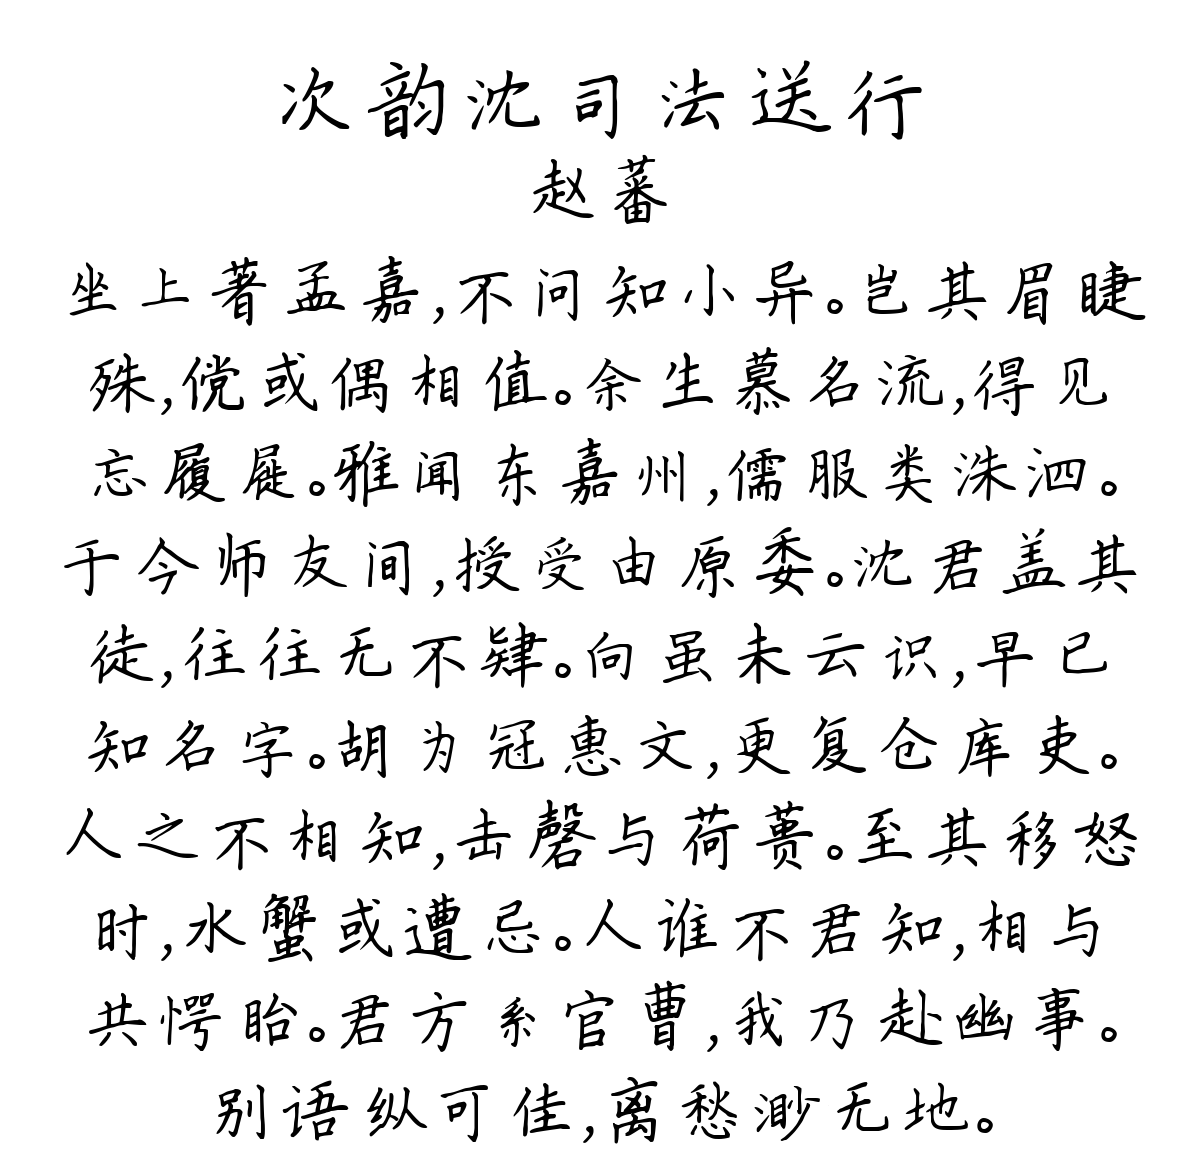 次韵沈司法送行
赵蕃
坐上著孟嘉,不问知小异。岂其眉睫
殊,傥或偶相值。余生慕名流,得见
忘履屣。雅闻东嘉州,儒服类洙泗。
于今师友间,授受由原委。沈君盖其
徒,往往无不肄。向虽未云识,早已
知名字。胡为冠惠文,更复仓库吏。
人之不相知,击磬与荷蒉。至其移怒
时,水蟹或遭忌。人谁不君知,相与
共愕眙。君方系官曹,我乃赴幽事。
别语纵可佳,离愁渺无地。